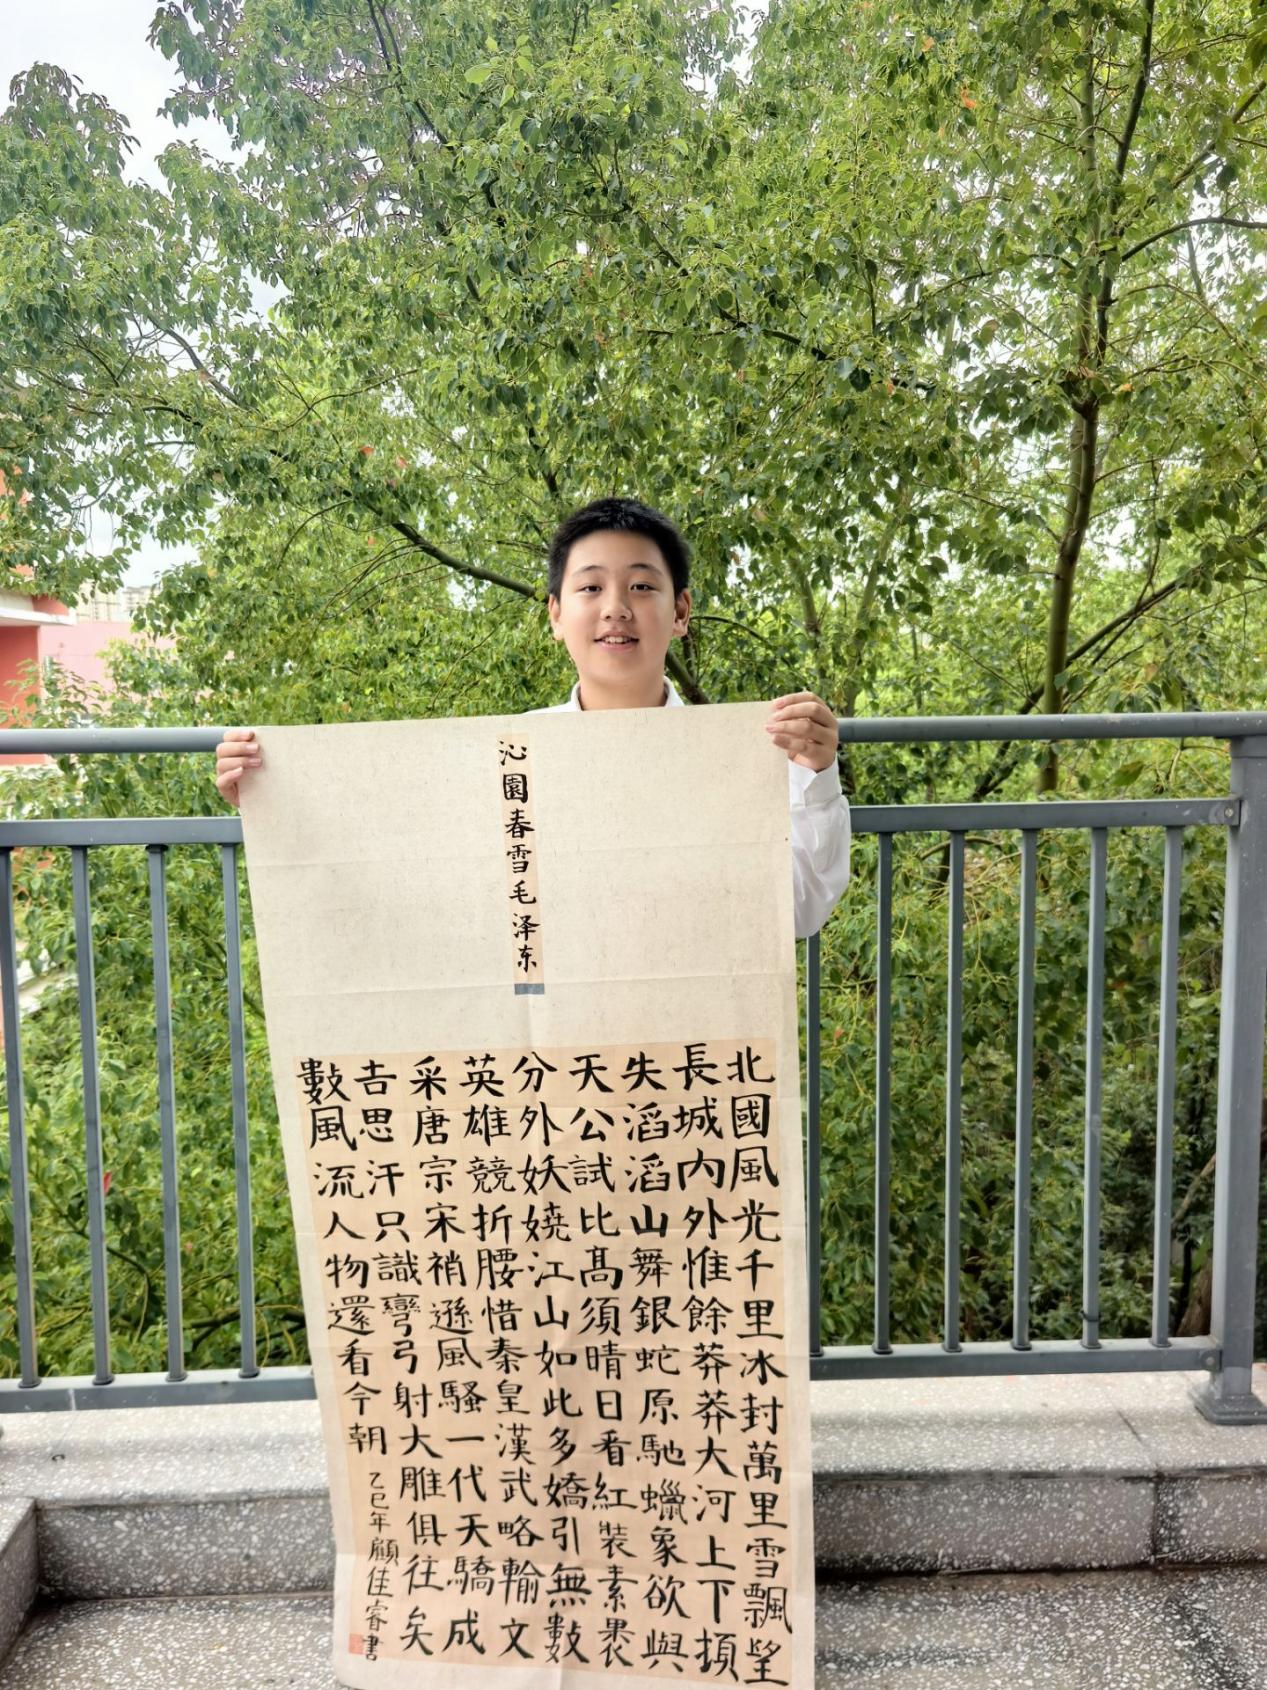 沁園春雪毛泽东
北國風光千里冰封萬里雪飄望
長城内外惟餘莽莽大河上下頓
失滔滔山舞銀蛇原馳蠟象欲與
天公試比髙須晴日看紅裝素裹
分外妖嬈江山如此多嬌引無數
英雄競折腰惜秦皇漢武略輸文
采唐宗宋稍遜風騷一代天驕成
吉思汗只識彎弓射大雕俱往矣
數風流人物還看今朝
乙巳年顧佳睿書